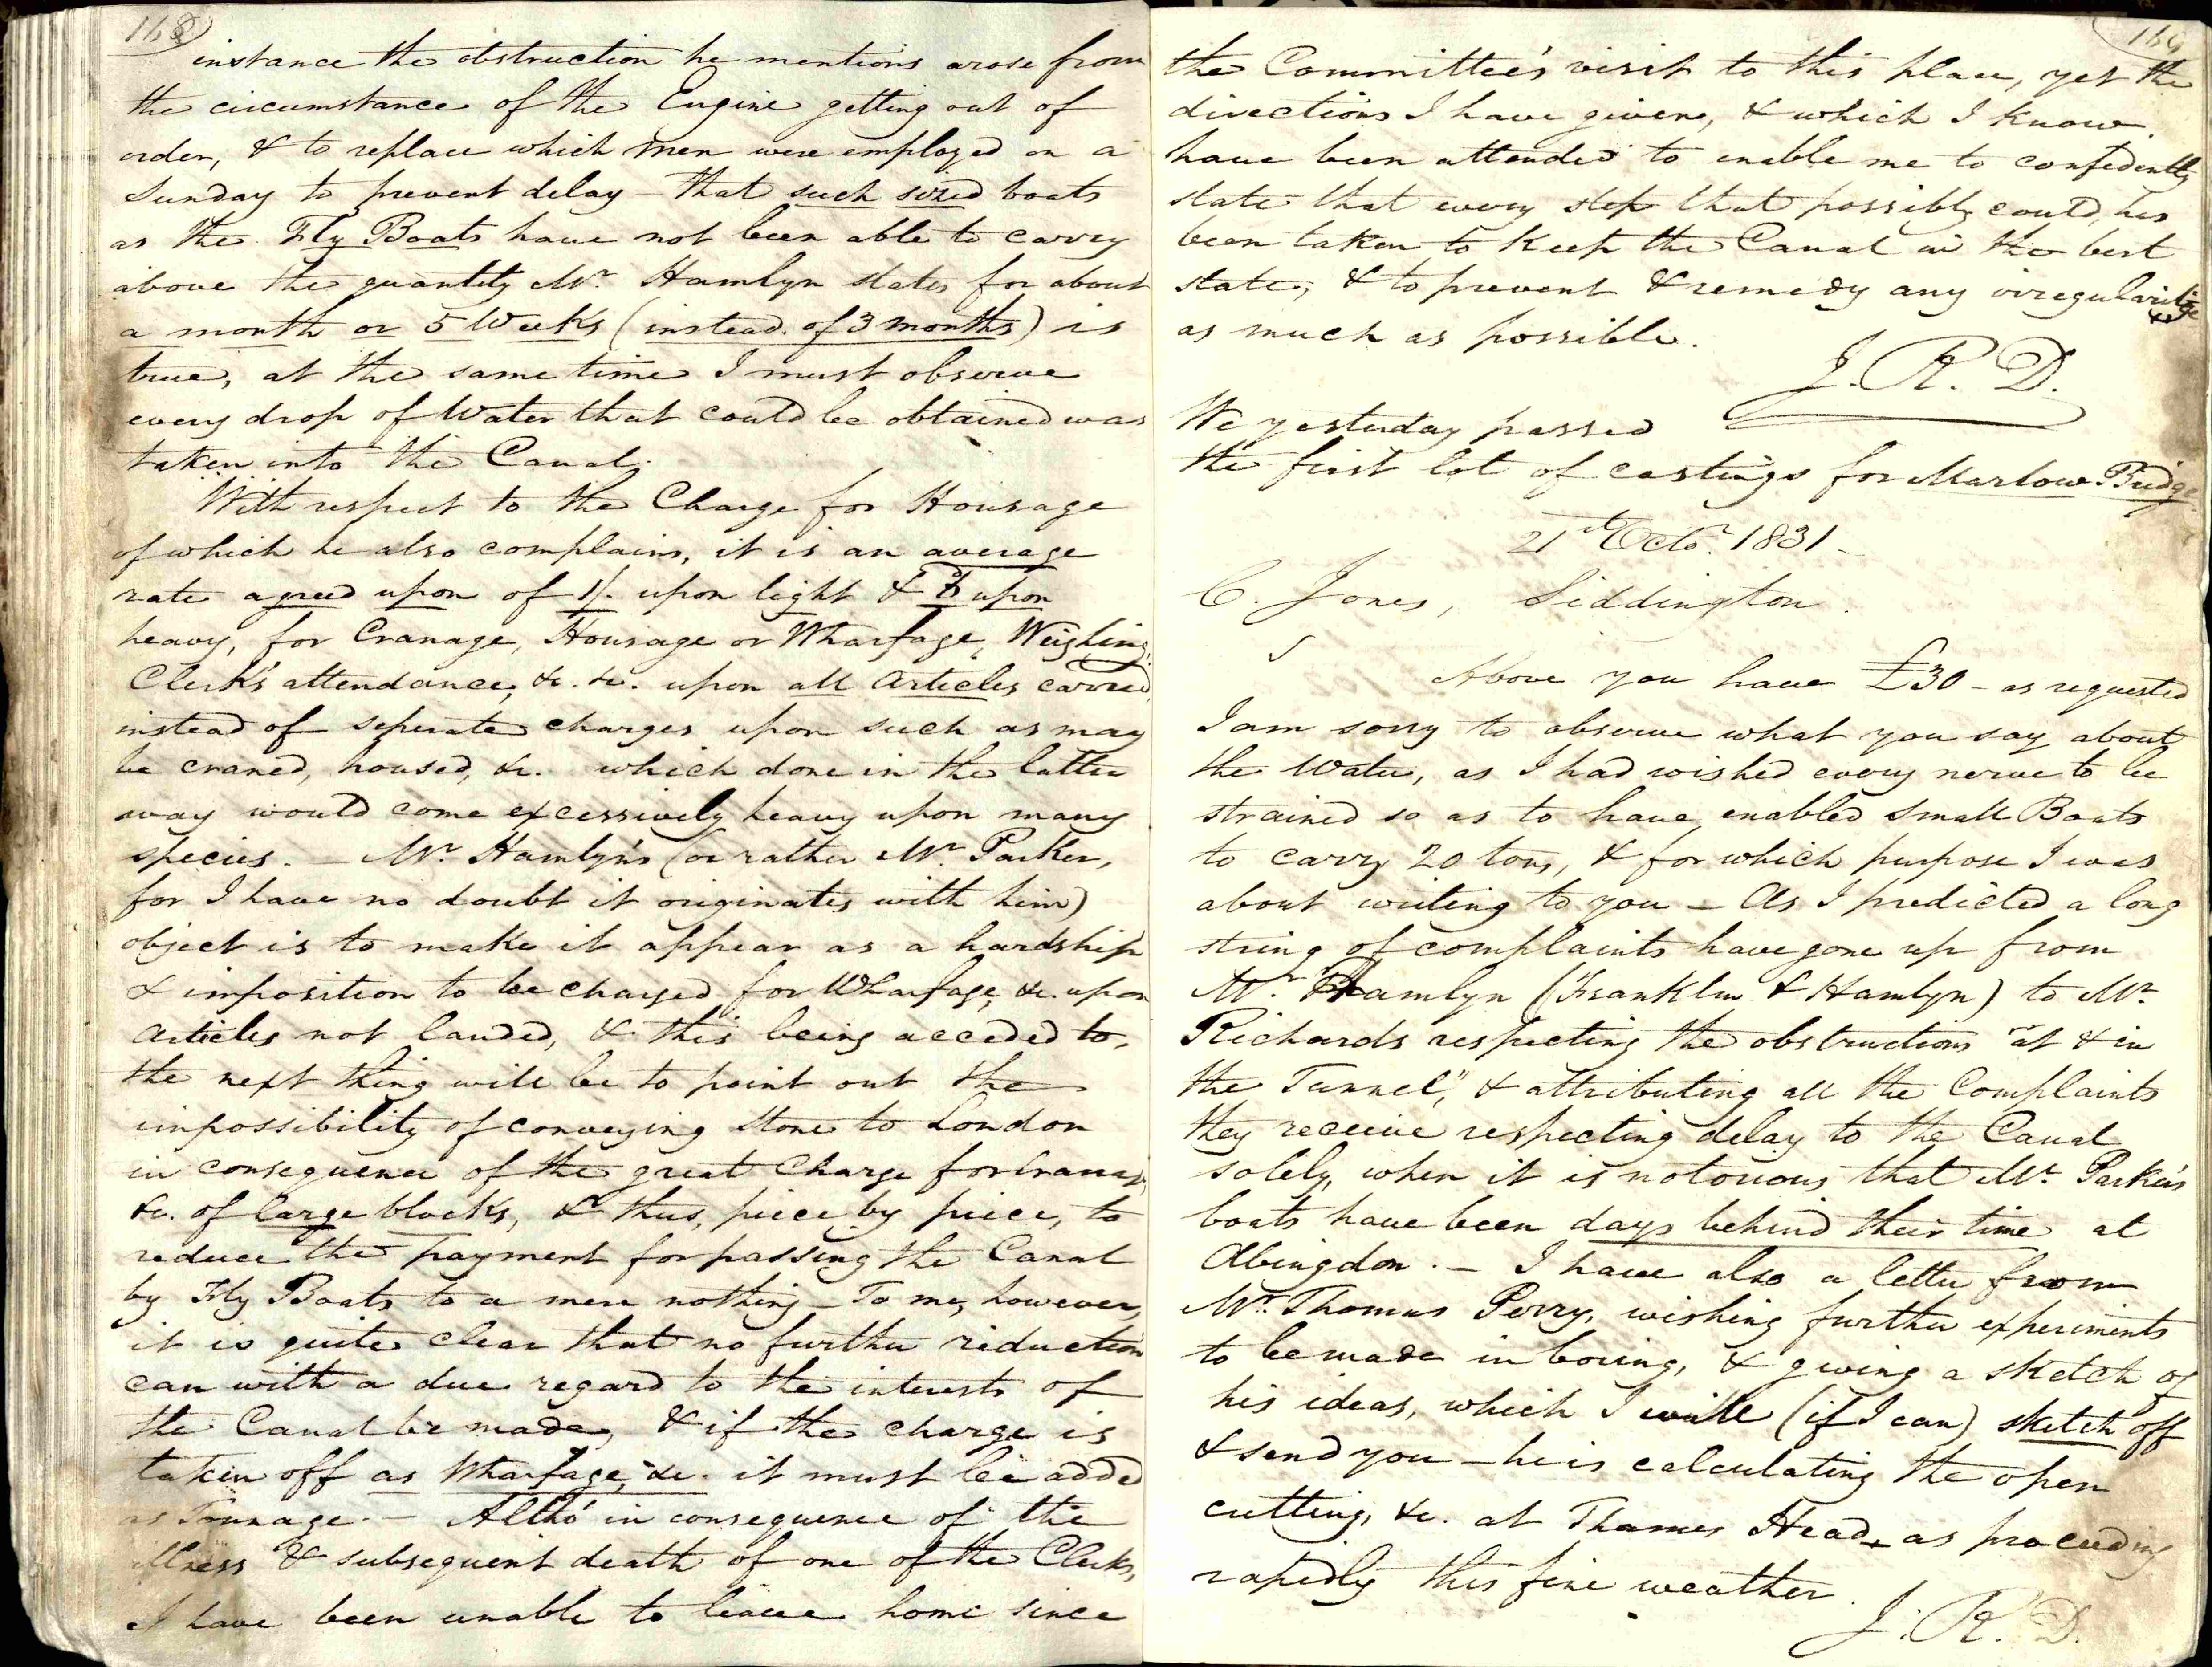 168
instance the obstruction he mentions arose from
the circumstance of the Engine getting out of
order, & to replace which men were employed on a
Sunday to prevent delay - that such sized boats
as the Fly Boats have not been able to carry
above the quantity Mr. Hamlyn states for about
a month or 5 Weeks (instead of 3 months) is
true, at the same time I must observe
every drop of Water that could be obtained was
taken into the Canal.
With respect to the Charge for Housage
of which he also complains, it is an average
rate agreed upon of 1/. upon light & upon
heavy, for Cranage, Housage or Wharfage, Weighing,
Clerk's attendance, &c. &c. upon all Articles carried,
instead of seperate charges upon such as may
be craned, housed, &c. which done in the latter
way would come excessively heavy upon many
species. - Mr. Hamlyn's (or rather Mr. Parker,
for I have no doubt it originates with him)
object is to make it appear as a hardship
& imposition to be charged for Wharfage, &c. upon
Articles not landed, & this being acceded to,
the next thing will be to point out the
impossibility of conveying Stone to London
in consequence of the great Charge for Cranage
&c. of large blocks, & thus, piece by piece, to
reduce the payment for passing the Canal
by Fly Boats to a mere nothing - To me, however,
it is quite clear that no further reduction
can with a due regard to the interests of
the Canal be made, & if the charge is
taken off as Wharfage, &c. it must be added
as Tonnage. - Altho' in consequence of the
illness & subsequent death of one of the Clerks,
I have been unable to leave home since
169
the Committee's visit to this place, yet the
directions I have given, & which I know
have been attended to enable me to confidently
state that every step that possibly could, has
been taken to Keep the Canal in the best
state, & to prevent & remedy any irregularities
as much as possible.
J. R. D.
We yesterday passed
the first lot of castings for Marlow Bridge
21st Octo. 1831 -
C. Jones, Siddington.
Above you have £30 - as requested
I am sorry to observe what you say about
the Water, as I had wished every nerve to be
strained so as to have enabled Small Boats
to carry 20 tons, & for which purpose I was
about writing to you - As I predicted a long
string of complaints have gone up from
Mr. Hamlyn (Franklin & Hamlyn) to Mr.
Richards respecting the obstructions "at & in
the Tunnel", & attributing all the Complaints
they receive respecting delay to the Canal
solely, when it is notorious that Mr. Parker's
boats have been days behind their time at
Abingdon. - I have also a letter from
Mr. Thomas Perry, wishing further experiments
to be made in boring, & giving a sketch of
his ideas, which I will (if I can) sketch off
& send you - he is calculating the open
cutting, &c. at Thames Head, as proceeding
rapidly this fine weather.
J. R. D.